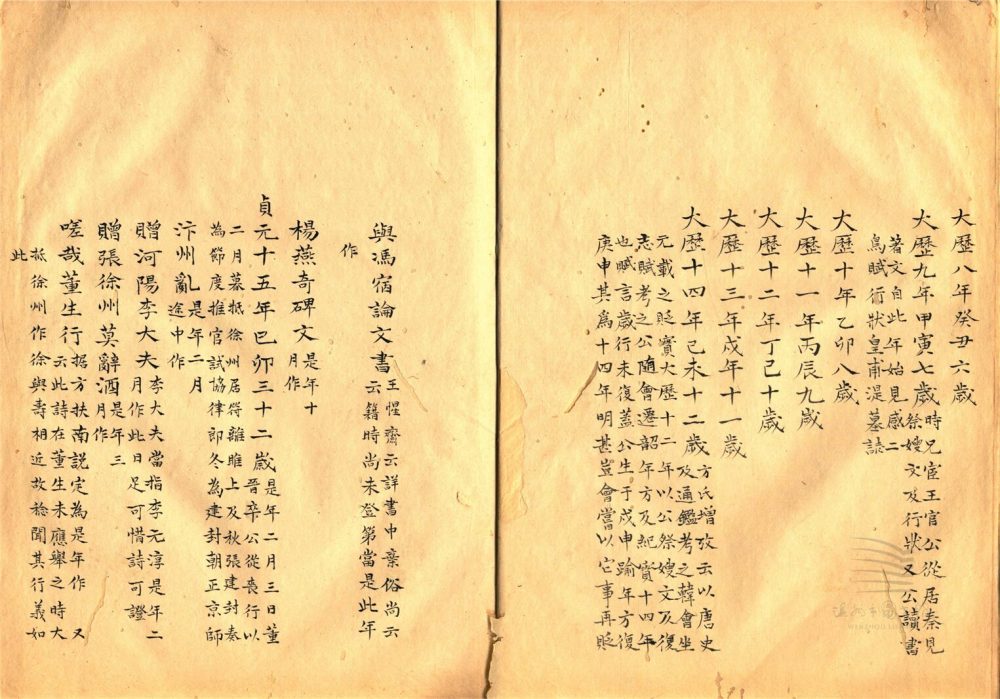 大歷八年癸丑六歲
大歷九年甲寅七歲
時兄官王官公從居秦見
祭嫂文及行狀又公讀書
著文自此年始見感二
鳥賦行狀皇甫湜墓誌
大歷十年乙卯八歲
大歷十一年丙辰九歲
大歷十二年丁巳十歲
大歷十三年戊年十一歲
大歷十四年己未十二歲
方氏增攷云以唐史
及通鑑考之韓會坐
元載之貶實大歷十二年以公祭嫂文及復
志賦考之公隨會遷韶年方及紀實十四年
也賦言歲行未復蓋公生于戊申踰年方復
庚申其為十四年明甚豈會當以它事再貶
與馮宿論文書
王惺齋云詳書中棄俗尚云
云籍時尚未登第當是此年
作
楊燕奇碑文
是年十
月作
貞元十五年己卯三十二歲
是年二月三日董
晉卒公從喪行以
二月暮抵徐州居符離睢上及秋張建封奏
為節度推官試協律郎冬為建封朝正京師
汴州亂
是年二月
途中作
贈河陽李大夫
李大夫當指李元淳是年二
月作此日足可惜詩可證
贈張徐州莫辭酒
是年三
月作
嗟哉董生行
據方扶南說定為是年作 又
云此詩在董生未應舉之時大
抵徐州作徐與壽相近故稔聞其行義如
此